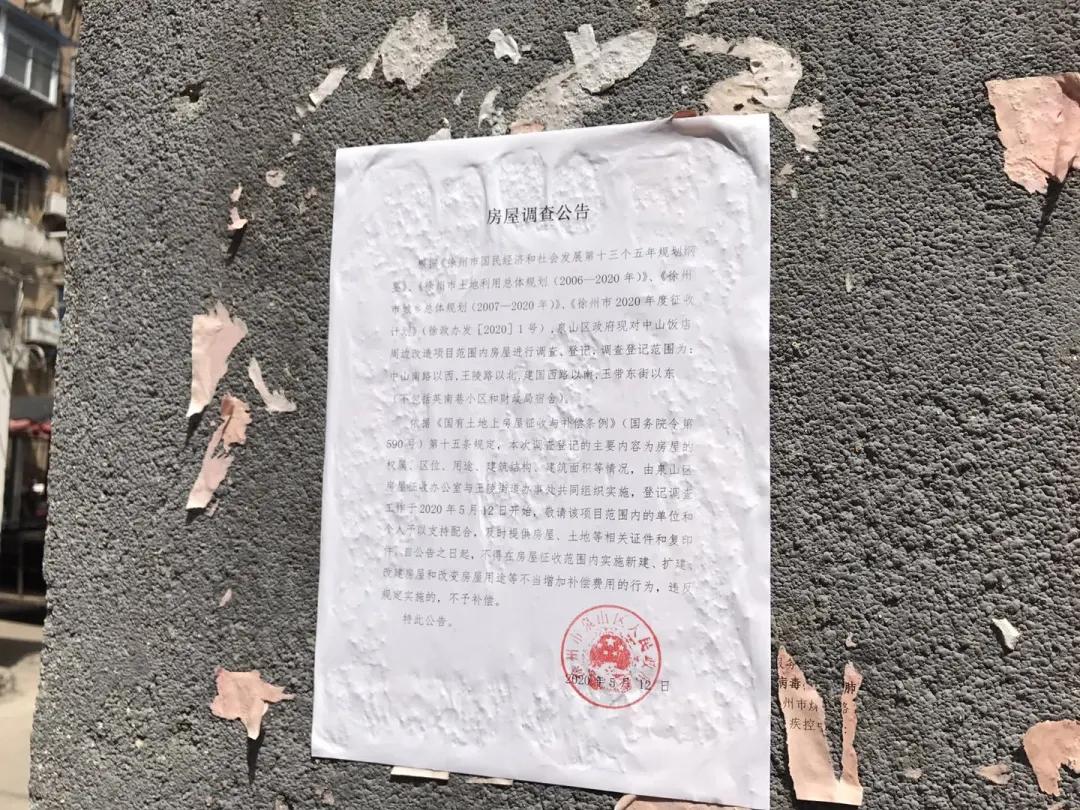 房屋调查公告
根据《徐州市国民经济和社会发展第十三个五年规划纲
要》、《徐州市土地利用总体规划（2006—2020年）》、《徐州
市城乡总体规划（2007—2020年）》、《徐州市2020年度征收
计划》（徐政办发［2020］1号），泉山区政府现对中山饭店
周边改造项目范围内房屋进行调查、登记，调查登记范围为：
中山南路以西,王陵路以北,建国西路以南,玉带东街以东
（不包括英南巷小区和财政局宿舍）。
依据《国有土地上房屋征收与补偿条例》（国务院令第
590号）第十五条规定，本次调查登记的主要内容为房屋的
权属、区位、用途、建筑结构、建筑面积等情况，由泉山区
房屋征收办公室与王陵街道办事处共同组织实施，登记调查
工作于2020年5月12日开始，敬请该项目范围内的单位和
个人予以支持配合，及时提供房屋、土地等相关证件和复印
件。自公告之日起，不得在房屋征收范围内实施新建、扩建、
改建房屋和改变房屋用途等不当增加补偿费用的行为，违反
规定实施的，不予补偿。
特此公告。
徐州市泉山区人民政府
2020年5月12日
病毒
肺
州市
路
疾控